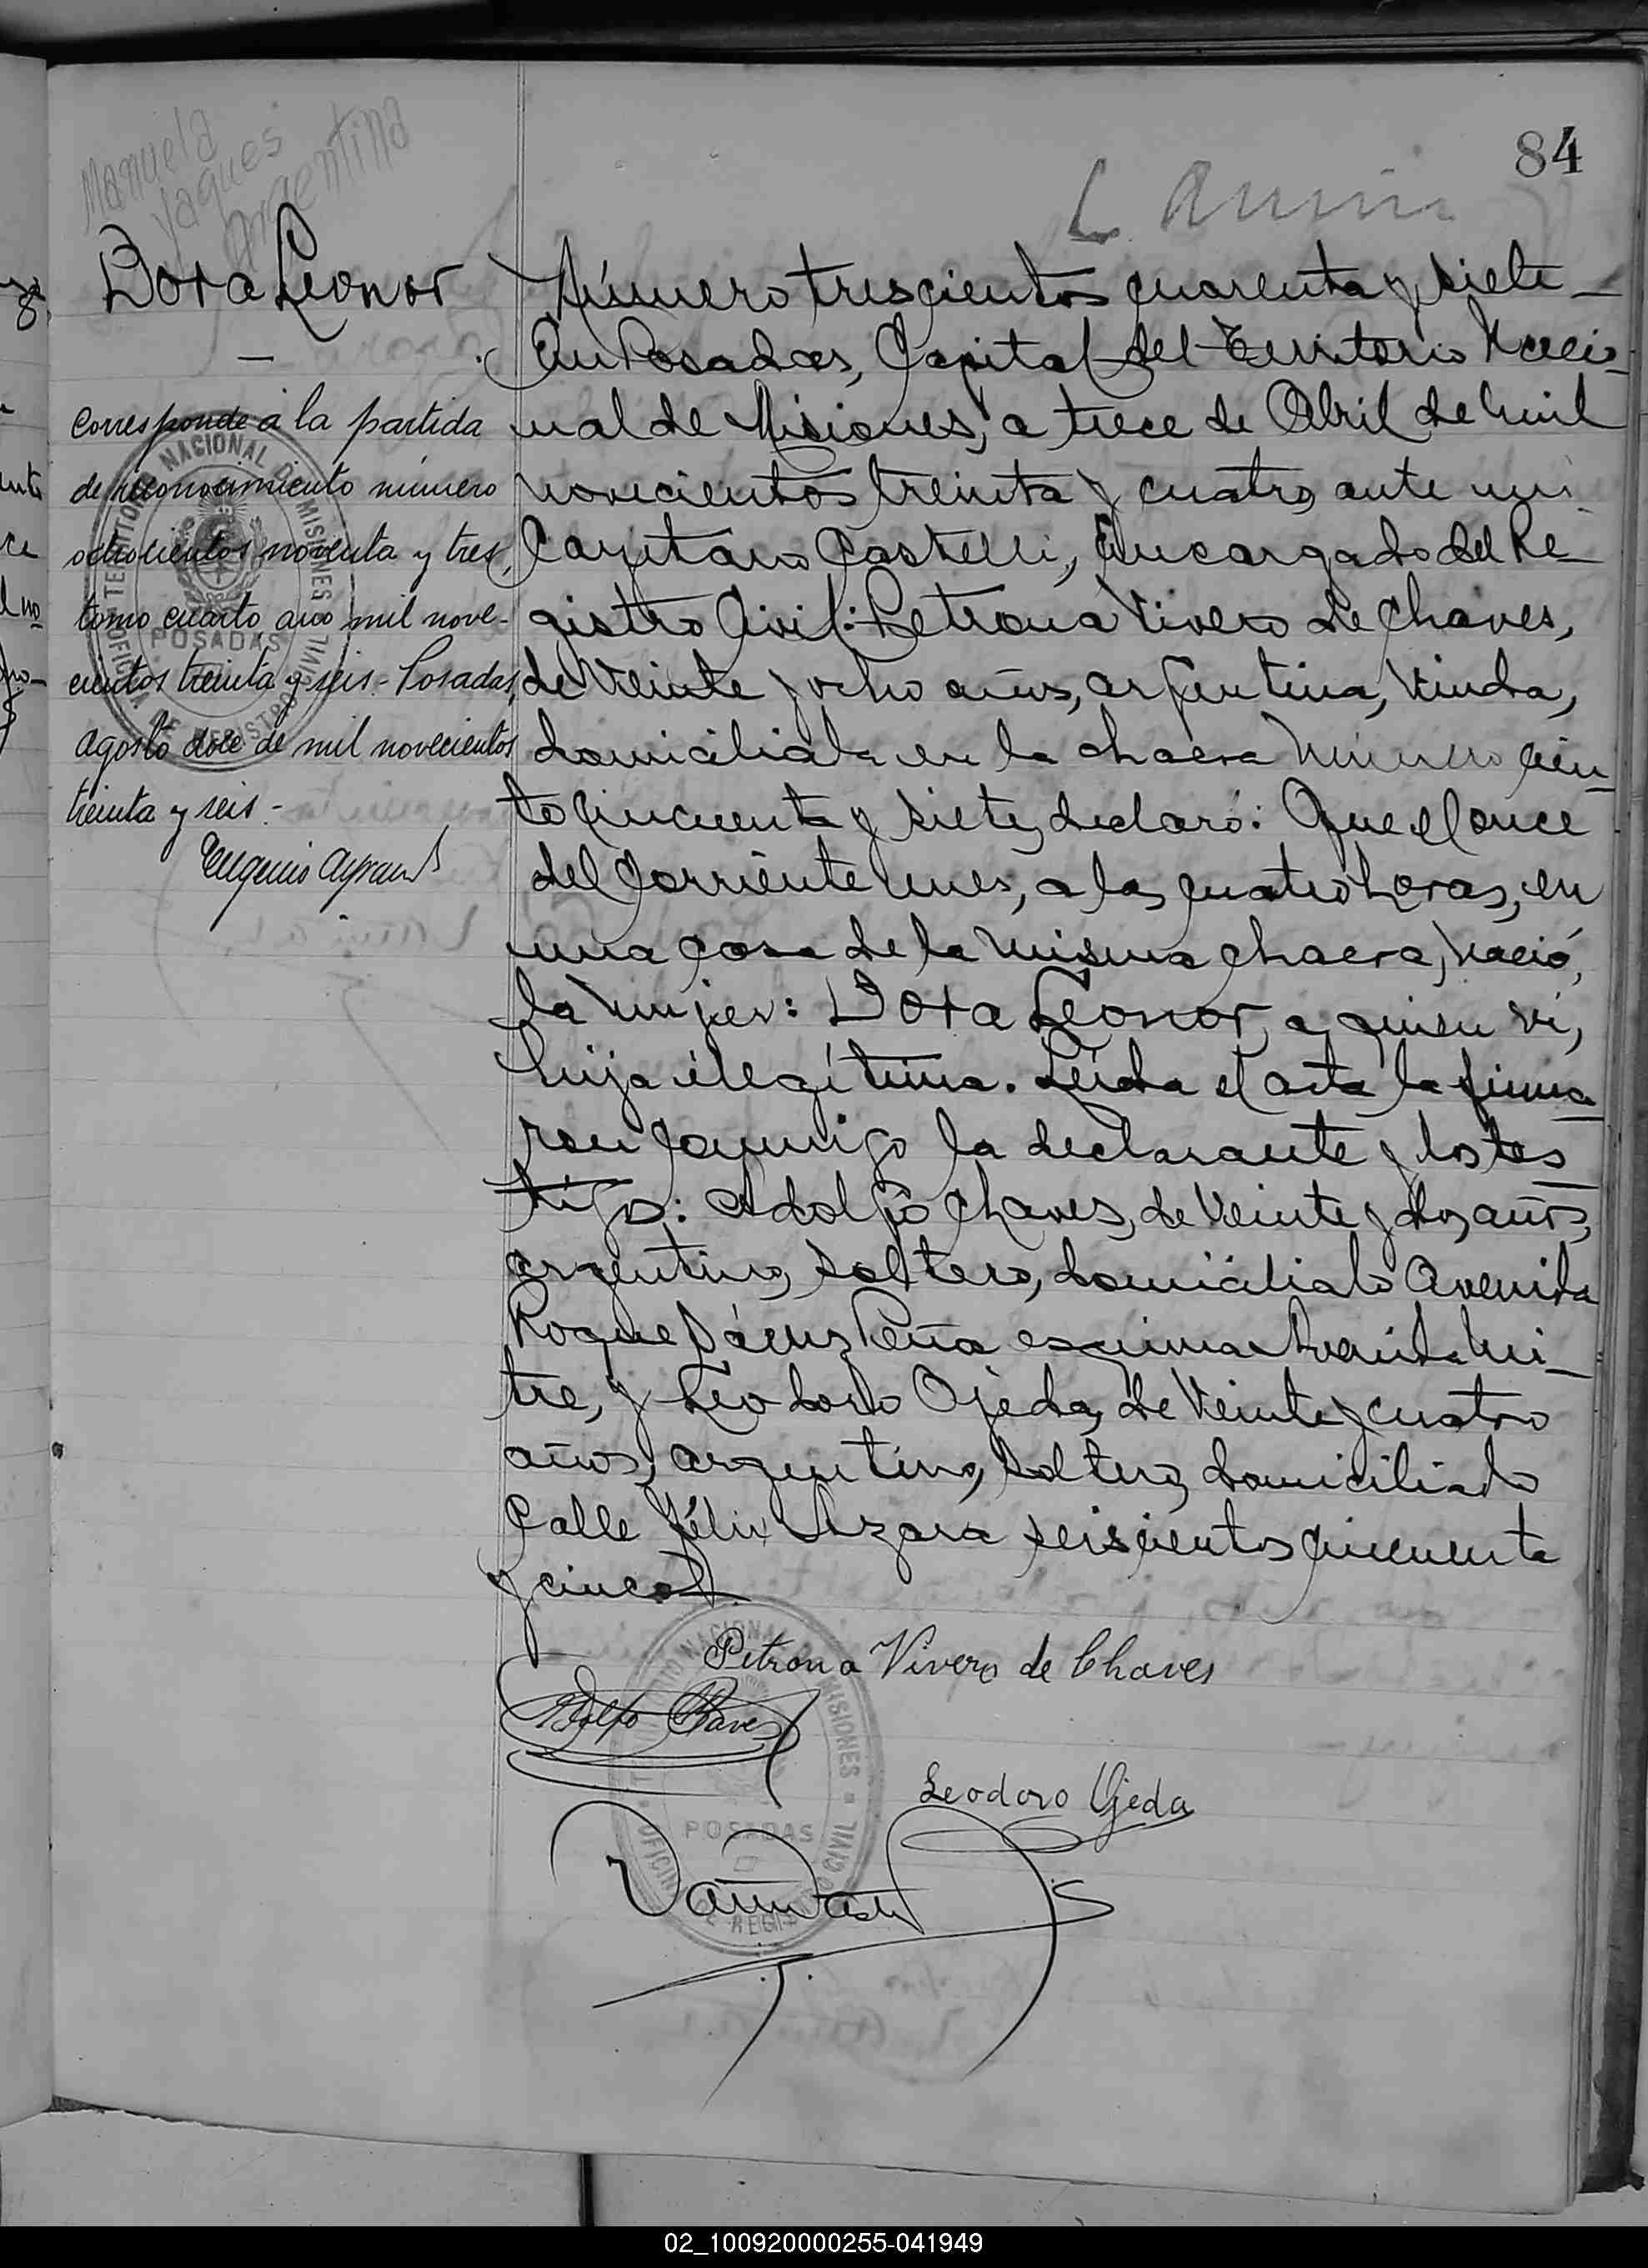 84
Manuela
Yaques
Argentina
Dora Leonor
Corresponde a la partida
de reconocimiento número
ochocientos noventa y tres,
tomo cuarto año mil nove-
cientos treinta y seis.- Posadas,
agosto doce de mil novecientos
treinta y seis.-
Eugenio
TERRITORIO NACIONAL DE MISIONES
POSADAS
OFICINA DE REGISTRO CIVIL
Número trescientos cuarenta y siete
En Posadas, Capital del Territorio Nacio-
nal de Misiones, a trece de Abril de mil
novecientos treinta y cuatro, ante mi
Cayetano Castelli, Encargado del Re-
gistro Civil: Petrona Vivero de Chaves,
de veinte y ocho años, argentina, viuda,
domiciliada en la chacra número cien-
to cincuenta y siete, declaró: Que el once
del corriente mes, a las cuatro horas, en
una casa de la misma chacra, nació,
la mujer: Dora Leonor, a quien vi,
hija ilegítima. Leída el acta la firma-
ron conmigo la declarante y los tes-
tigos: Adolfo Chaves, de veinte y dos años,
argentino, soltero, domiciliado Avenida
Roque Sáenz Peña esquina Avenida Mi-
tre, y Leodoro Ojeda, de veinte y cuatro
años, argentino, soltero, domiciliado
calle Félix Azara seiscientos cincuenta
y cinco.
Petrona Vivero de Chaves
Adolfo Chaves
Leodoro Ojeda
TERRITORIO NACIONAL DE MISIONES
POSADAS
OFICINA DE REGISTRO CIVIL
02_100920000255-041949